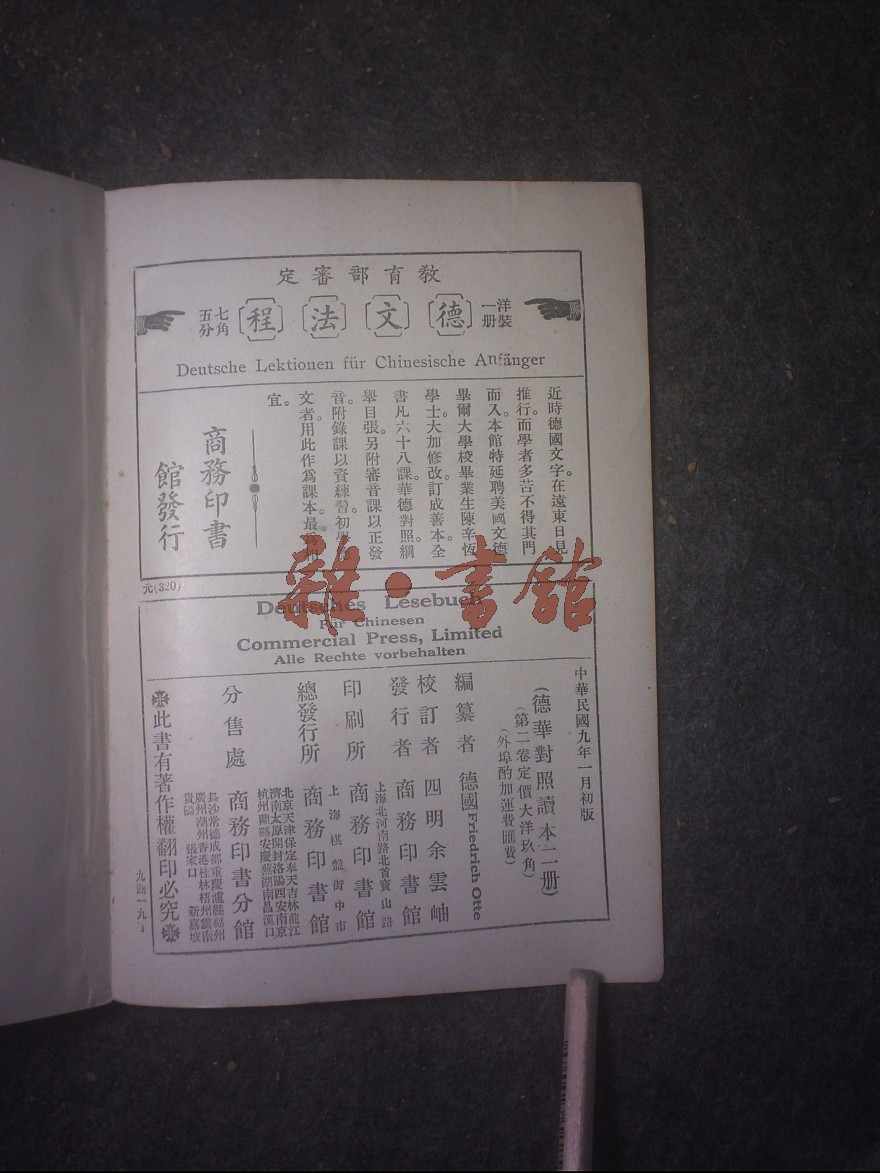 教育部審定
洋裝一册
德文法程
七角五分
Deutsche Lektionen für Chinesische Anfänger
近時德國文字。在遠東日見
推行。而學者多苦不得其門
而入。本館特延聘美國文德
畢爾大學校畢業生陳辛恆
學士。大加修改。訂成善本。全
書凡六十八課。華德對照。綱
舉目張。另附審音課以正發
音。附錄課以資練習。初學
文者。用此作爲課本。最
宜。
商務印書
館發行
元(320)
雜·書館
Deutsches Lesebuch
Für Chinesen
Commercial Press, Limited
Alle Rechte vorbehalten
中華民國九年一月初版
(德華對照讀本二册)
(第二卷定價大洋玖角)
(外埠酌加運費匯費)
編纂者 德國Friedrich Otte
校訂者 四明余雲岫
發行者 商務印書館
上海北河南路北首寶山路
印刷所 商務印書館
上海棋盤街中市
總發行所 商務印書館
北京天津保定奉天吉林龍江
濟南太原開封洛陽西安南京
杭州蘭谿安慶蕪湖南昌漢口
分售處 商務印書分館
長沙常德成都重慶瀘縣福州
廣州潮州香港桂林梧州雲南
貴陽 張家口 新嘉坡
此書有著作權翻印必究